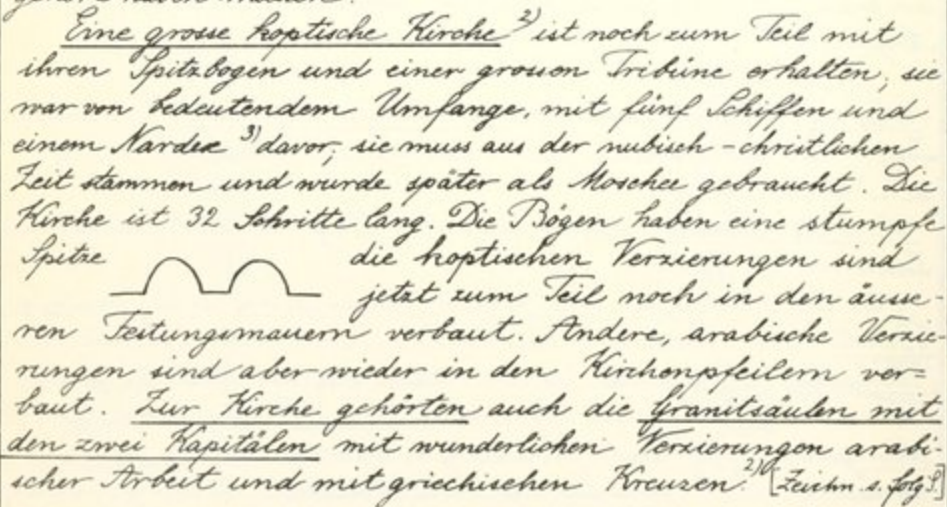 Eine grosse koptische Kirche 2) ist noch zum Teil mit
ihren Spitzbogen und einer grossen Tribüne erhalten, sie
war von bedeutendem Umfange, mit fünf Schiffen und
einem Nardex 3) davor; sie muss aus der nubisch-christlichen
Zeit stammen und wurde später als Moschee gebraucht. Die
Kirche ist 32 Schritte lang. Die Bögen haben eine stumpfe
Spitze die koptischen Verzierungen sind
jetzt zum Teil noch in den äusse-
ren Festungsmauern verbaut. Andere, arabische Verzie-
rungen sind aber wieder in den Kirchenpfeilern ver=
baut. Zur Kirche gehörten auch die Granitsäulen mit
den zwei Kapitälen mit wunderlichen Verzierungen arabi-
scher Arbeit und mit griechischen Kreuzen. 2) [Zeichn. s. folg. S.]